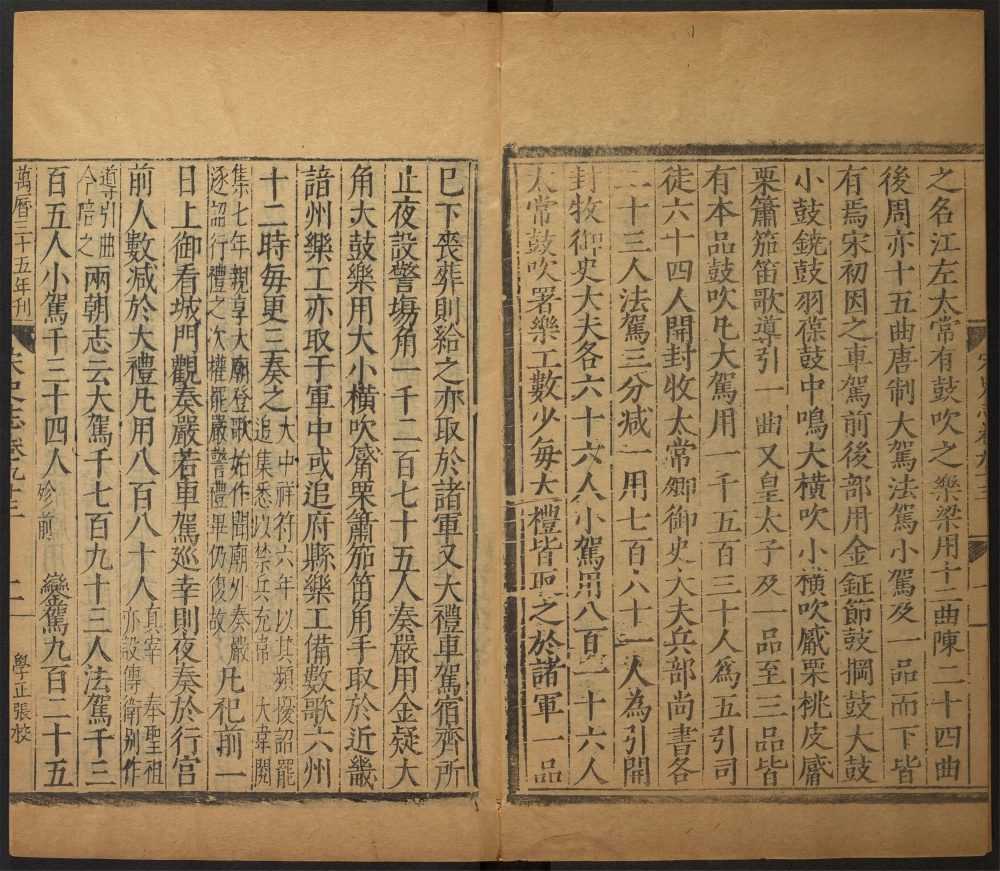 之名江左太常有鼓吹之樂梁用十二曲陳二十四曲
後周亦十五曲唐制大駕法駕小駕及一品而下皆
有焉宋初因之車駕前後部用金鉦節鼓㭎鼓大鼓
小鼓鐃鼓羽葆鼓中鳴大橫吹小橫吹觱栗桃皮觱
栗簫笳笛歌導引一曲又皇太子及一品至三品皆
有本品鼓吹凡大駕用一千五百三十人爲五引司
徒六十四人開封牧太常卿御史大夫兵部尚書各
二十三人法駕三分減一用七百六十一人為引開
封牧御史大夫各六十六人小駕用八百一十六人
太常鼓吹署樂工數少每大禮皆取之於諸軍一品
宋史志卷九十三
已下喪葬則給之亦取於諸軍又大禮車駕宿齊所
止夜設警塲角一千二百七十五人奏嚴用金疑大
角大鼓樂用大小橫吹觱栗簫笳笛角手取於近畿
諳州樂工亦取于軍中或追府縣樂工備數歌六州
十二時每更三奏之大中祥符六年以其頻擾詔罷
追集悉以禁兵充常大韋閱
集七年親享大廟登歌始作聞廟外奏嚴
逐詔行禮之次權罷嚴警禮畢仍復故凡祀前一
日上御看城門觀奏嚴若車駕巡幸則夜奏於行宮
前人數減於大禮凡用八百八十人真宰奉聖祖
亦設傳衛别作
導引曲
今陪之兩朝志云大駕千七百九十三人法駕千三
百五人小駕千三十四人殄薊鑾駕九百二十五
萬曆三十五年刊
宋史志卷九十三
二
學正張校